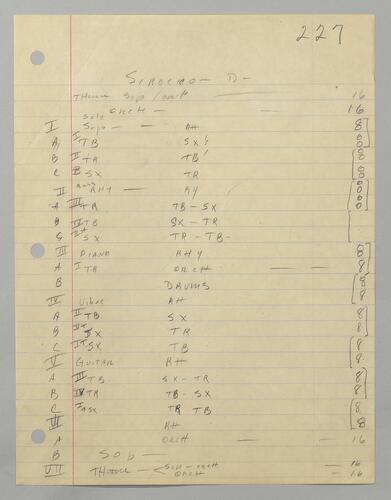 227
D-
THEME SOP / 16
ORCH — — 16
SOLO
I SOPO — — RH 8
A I TB SX 8
B II TR TB 8
C II SX TR 8
II RHY RY 8
A III TR TB - SX 8
B IV TB SX - TR
C II SX TR - TB -
III PIANO RHY 8
A I TR ORCH — — 8
B DRUMS 8
IV VIBE RH 8
A II TB SX 8
B SX TR 8
C SX TB 8
V GUITAR RH 8
A III TB SX - TR 8
B IV TR TB - SX 8
C I ASX TR TB 8
RH 8
A ORCH — — 16
B SOP — 16
VII THEME — SOP - ORCH — 16
ORCH